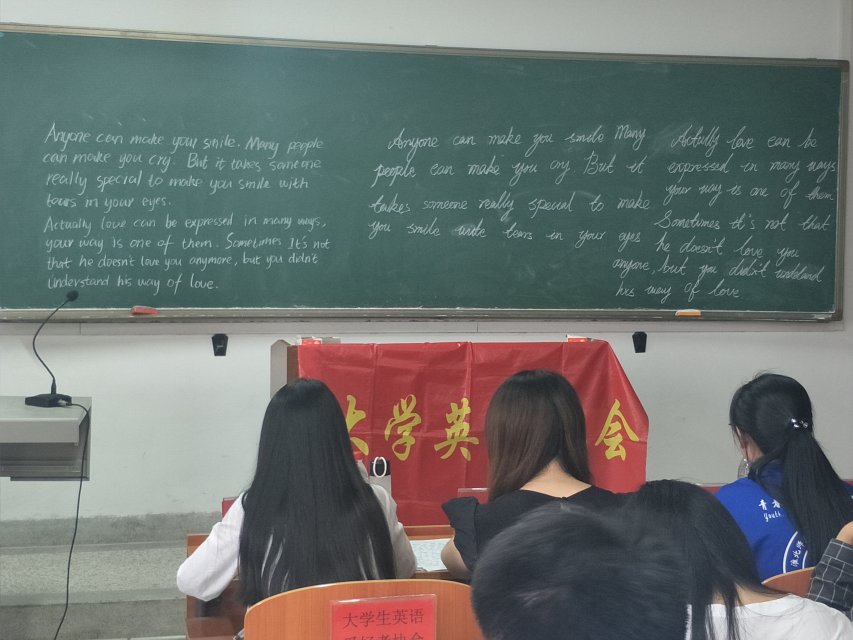 Anyone can make your smile. Many people
can make you cry. But it takes someone
really special to make you smile with
tears in your eyes.
Actually love can be expressed in many ways,
your way is one of them. Sometimes It's not
that he doesn't love you anymore, but you didn't
understand his way of love.
Anyone can make you smile Many
people can make you cry. But it
takes someone really special to make
you smile with tears in your eyes
Actully love can be
expressed in many ways
your way is one of them
Sometimes it's not that
he doesn't love you
anyone, but you didn't understand
his way of love
大学英 会
青
You
淮北师
大学生英语
爱好者协会